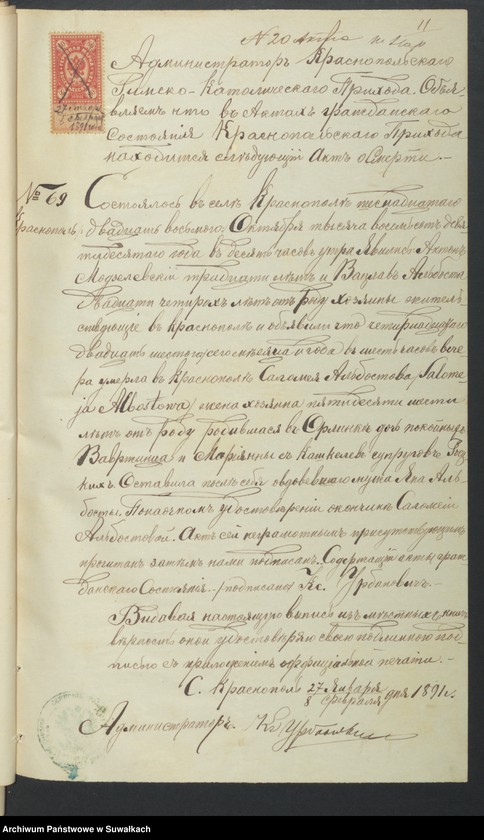 11
№ 20 Акта
Администраторъ Краснопольскаго
Римско-Католическаго Прихода. Объя
вляетъ что въ Актахъ гражданскаго
Состоянія Краснопольскаго Прихода
находится слѣдующій Актъ о Смерти.—
№ 69
Краснополь
Состоялось въ селѣ Краснополѣ шестнадцатаго
двадцать восьмого Октября тысяча восемьсотъ девя
тидесятаго года въ десять часовъ утра. Явились Антонъ
Модзелевскій тридцати лѣтъ и Вацлавъ
двадцати четырехъ лѣтъ отъ роду хозяины житель
ствующіе въ Краснополѣ и объявили что четырнадцатаго
двадцать шестого сего мѣсяца и года въ шесть часовъ вече
ра умерла въ Краснополѣ Саломея Альбостова /Salome
ja Albostowa/ жена хозяина пятидесяти шести
лѣтъ отъ роду родившаяся въ дочь покойныхъ
Вавржинца и Маріянны съ супруговъ
кихъ. Оставила послѣ себя овдовѣвшаго мужа Яна Аль-
босты. По настоящемъ удостовѣреніи о кончинѣ Саломеи
Альбостовой. Актъ сей неграмотнымъ присутствующимъ
прочитанъ затѣмъ нами подписанъ. Содержащій акты граж
данскаго Состоянія.. /подписано/ Кс. Урбановичъ.—
Выдавая настоящую выпись изъ мѣстныхъ книгъ
вѣрность оной удостовѣряю своею подлинною под
писью съ приложеніемъ оффиціальной печати.—
С. Краснополь 27 Января
8 Февраля дня 1891 г.
Администраторъ. Кс Урбановичъ
Archiwum Państwowe w Suwałkach